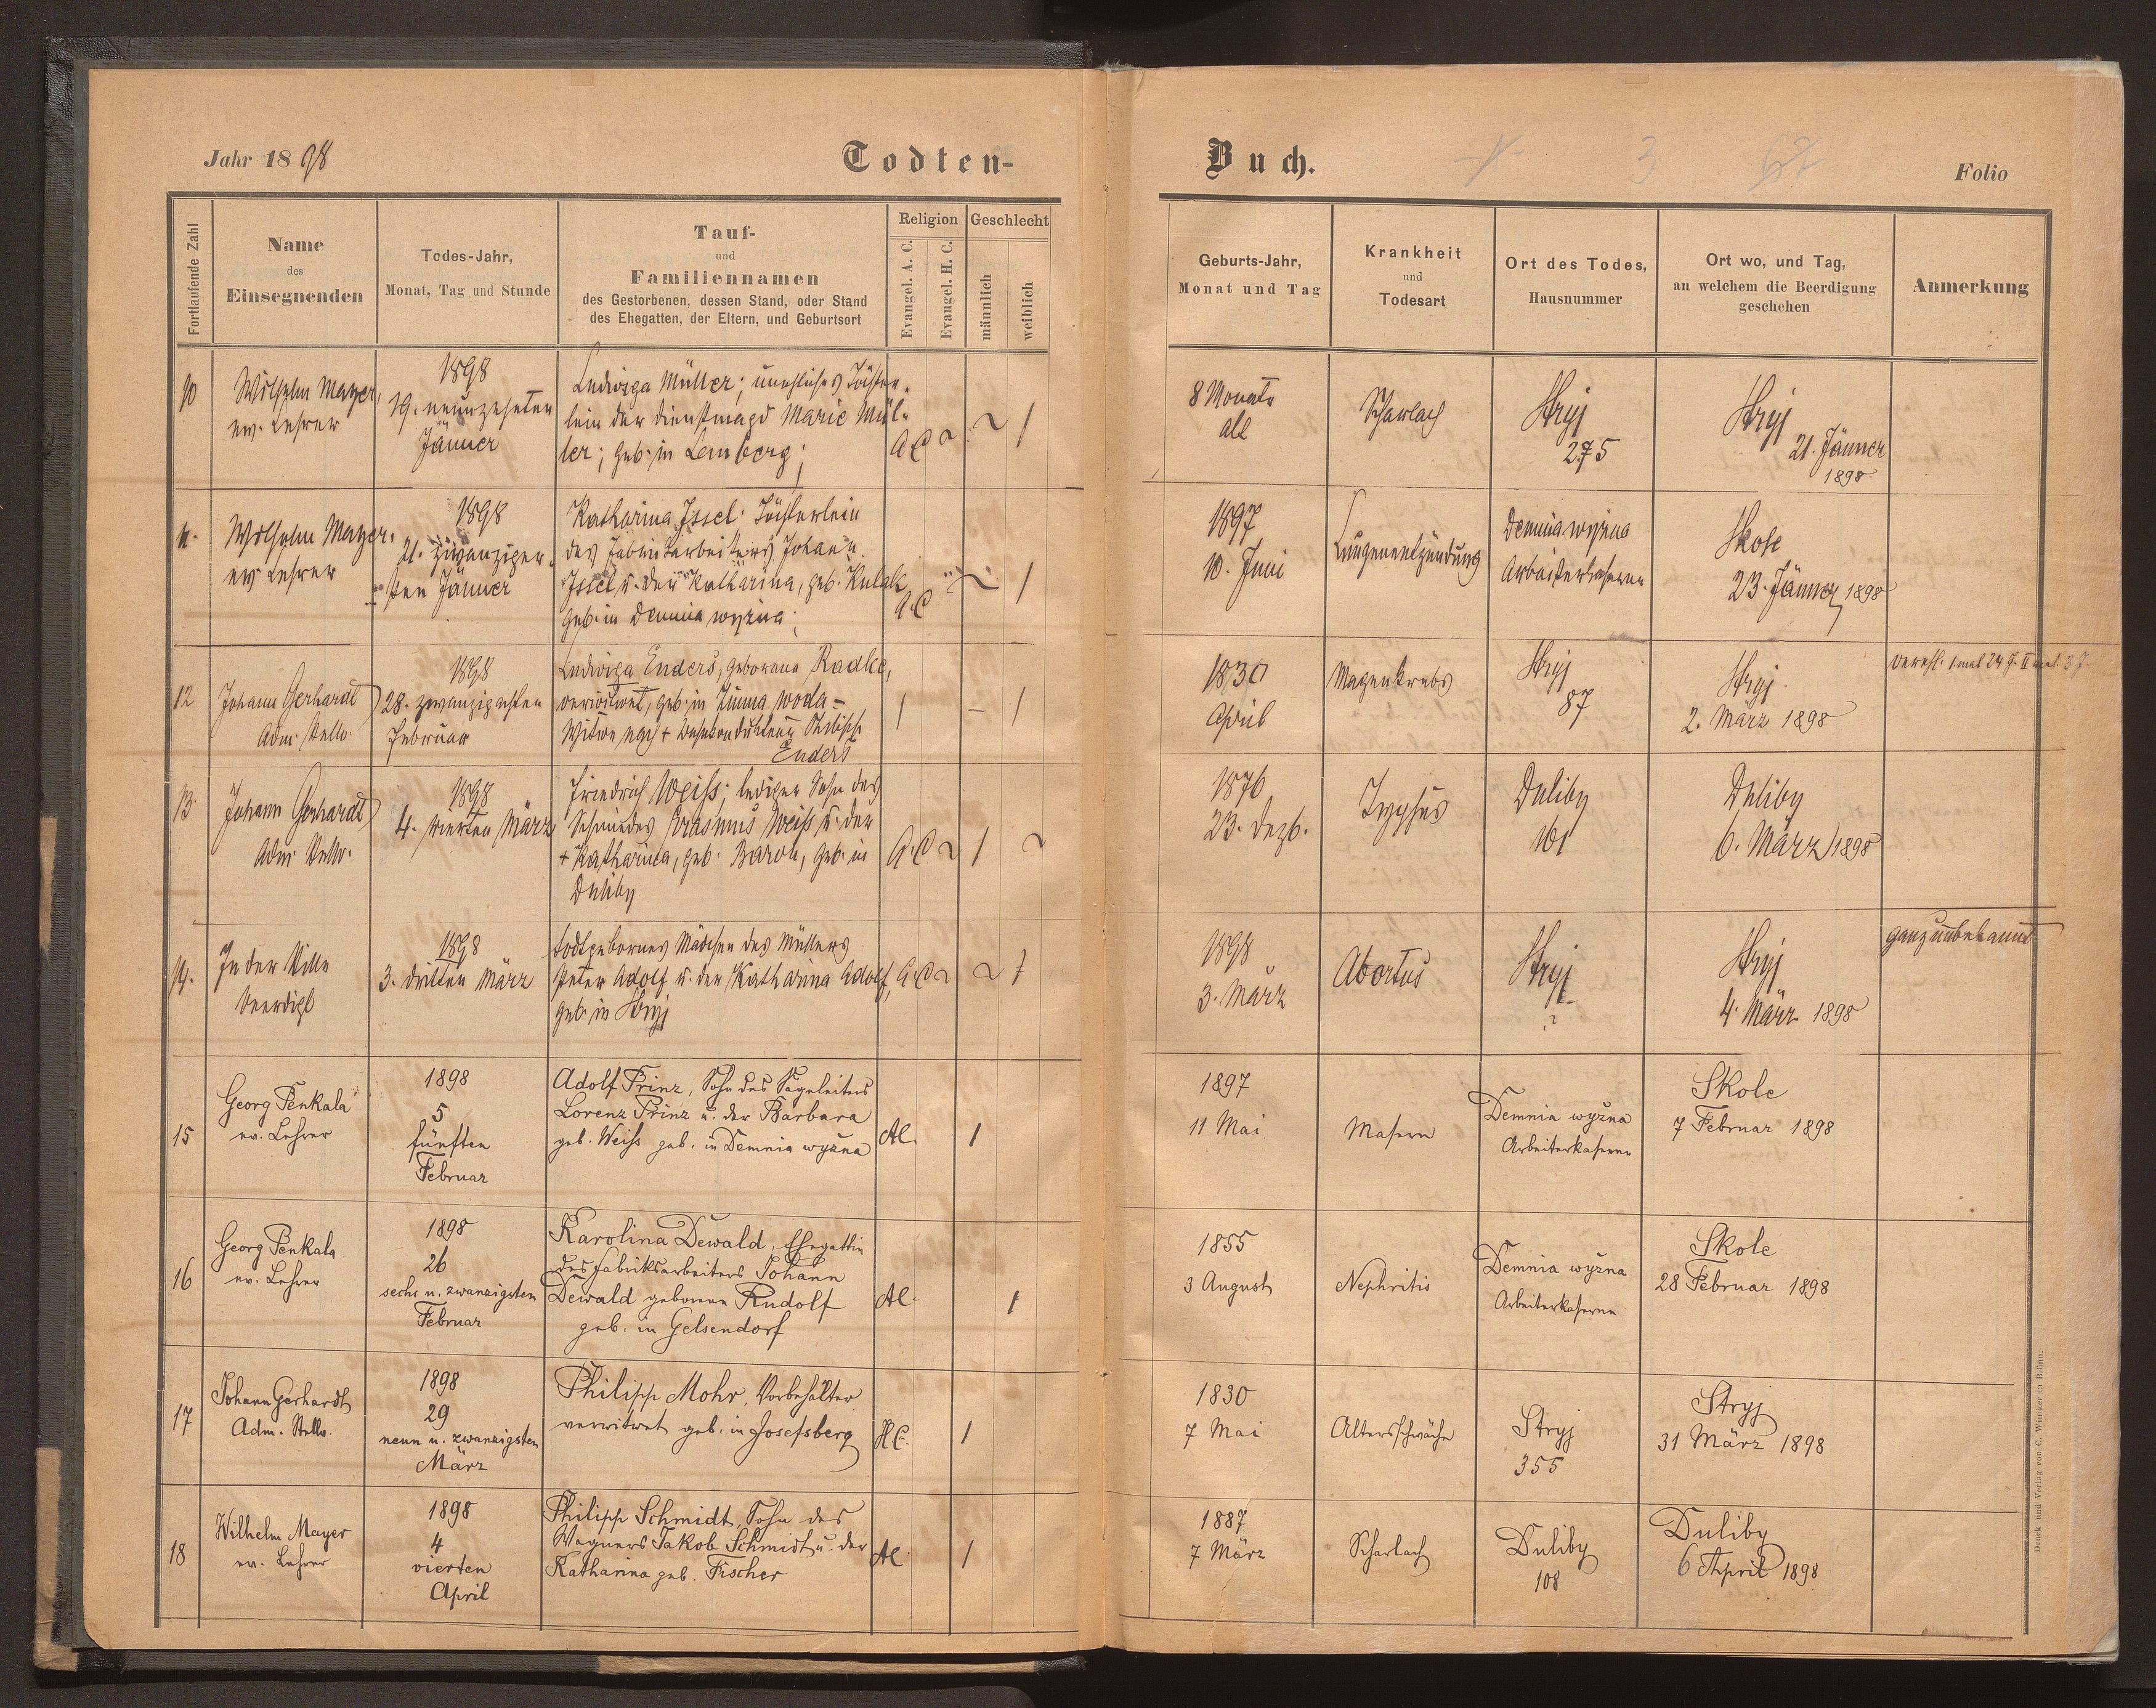 Jahr 1898
Todten-
Buch.
3
Folio
Fortlaufende Zahl
Name
des
Einsegnenden
Todes-Jahr,
Monat, Tag und Stunde
Tauf-
und
Familiennamen
des Gestorbenen, dessen Stand, oder Stand
des Ehegatten, der Eltern, und Geburtsort
Religion
Evangel. A. C.
Evangel. H. C.
Geschlecht
männlich
weiblich
Geburts-Jahr,
Monat und Tag
Krankheit
und
Todesart
Ort des Todes,
Hausnummer
Ort wo, und Tag,
an welchem die Beerdigung
geschehen
Anmerkung
10
Wilhelm Mayer,
ev. Lehrer
1898
19. neunzehnten
Jänner
Ludwiga Müller; unehliches Töchter-
lein der Dienstmagd Marie Mül-
ler; geb. in Lemberg;
A.C
1
8 Monate
alt
Scharlach
Stryj
275
Stryj
21. Jänner
1898
11.
Wilhelm Mayer.
ev. Lehrer
1898
21.
sten Jänner
Katharina Issel. Töchterlein
des Fabriksarbeiters Johann
Issel u. der Katharina, geb. Kulak
geb. in Demnia wyżna;
A.C
1
1897
10. Juni
Lungenentzündung
Demnia wyżna
Arbeiterkaserne
Skole
23. Jänner 1898
12
Johann Gerhardt
Adm. Stellv.
1898
28. zwanzigachten
Februar
Ludwiga Enders, geborene Radke,
verwitwet, geb. in Zimna woda -
Witwe nach + Philipp
Enders
1
-
1
1830
April
Magenkrebs
Stryj
87
Stryj.
2. März 1898
verehl. 1mal 24 J. II mal 3 J.
13.
Johann Gerhardt
Adm. Stellv.
1898
4. vierten März
Friedrich Weiss; lediger Sohn des
Schmiedes Erasmus Weiss u. der
+ Katharina, geb. Baron, geb. in
Duliby
A.C
1
1876
23. Dezb.
Typhus
Duliby
161
Duliby
6. März 1898
14.
In der Stille
beerdigt
1898
3. dritten März
todtgebornes Mädchen des Müllers
Peter Adolf u. der Katharina Adolf,
geb. in Stryj
A.C
1
1898
3. März
Abortus
Stryj
?
Stryj
4. März 1898
ganz unbekannt
15
Georg Penkala
ev. Lehrer
1898
5
fünften
Februar
Adolf Prinz, Sohn des Sägeleiters
Lorenz Prinz u. der Barbara
geb. Weiss geb. in Demnia wyżna
AC.
1
1897
11 Mai
Masern
Demnia wyżna
Arbeiterkaserne
Skole
7 Februar 1898
16
Georg Penkala
ev. Lehrer
1898
26
sechs u. zwanzigsten
Februar
Karolina Dewald, Ehegattin
des Fabriksarbeiters Johann
Dewald geborene Rudolf
geb. in Gelsendorf
AC.
1
1855
3 August
Nephritis
Demnia wyżna
Arbeiterkaserne
Skole
28 Februar 1898
17
Johann Gerhardt
Adm. Stellv.
1898
29
neun u. zwanzigsten
März
Philipp Mohr, Vorbehälter
verwitwet geb. in Josefsberg
HC.
1
1830
7 Mai
Altersschwäche
Stryj
355
Stryj
31 März 1898
18
Wilhelm Mayer
ev. Lehrer
1898
4
vierten
April
Philipp Schmidt, Sohn des
Wagners Jakob Schmidt u. der
Katharina geb. Fischer
AC.
1
1887
7 März
Scharlach
Duliby
108
Duliby
6 April 1898
Druck und Verlag von C. Winiker in Brünn.